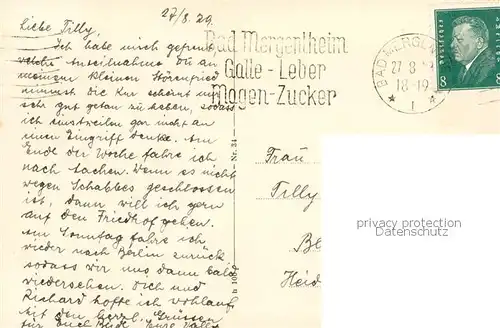 27/8.29.
Liebe Tilly,
Ich habe mich gefreut,
welche Anteilnahme Du an
meinem kleinen Störenfried
nimmst. Die Kur scheint mir
sehr gut getan zu haben, sodass
ich einstweilen gar nicht an
einen Eingriff denke. Am
Ende der Woche fahre ich
nach Aachen. Wenn es nicht
wegen Schabbes geschlossen
ist, dann will ich gern
auf den Friedhof gehen.
Am Sonntag fahre ich
wieder nach Berlin zurück
sodass wir uns dann bald
wiedersehen. Dich und
Richard hoffe ich wohlauf
Mit den herzl. Grüssen
für Euch Beide Eure
Bad Mergentheim
Galle - Leber
Magen-Zucker
BAD MERGEN
27 8
18-19
* I *
Deutsches
8 8
Nr. 34
Frau
Tilly
Be
Heid
privacy protection
Datenschutz